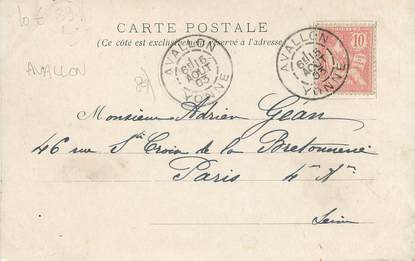 CARTE POSTALE
(Ce côté est exclusivement réservé à l'adresse)
AVALLON
YONNE
AOUT
AVALLON
YONNE
AOUT
10
AVALLON
Monsieur Adrien Géan
46 rue Ste Croix de la Bretonnerie
Paris 4e Arr
Seine